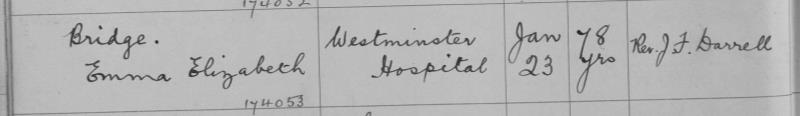 174052
Bridge. Westminster Jan 78 Rev. J. F. Darrell
Emma Elizabeth Hospital 23 yrs
174053